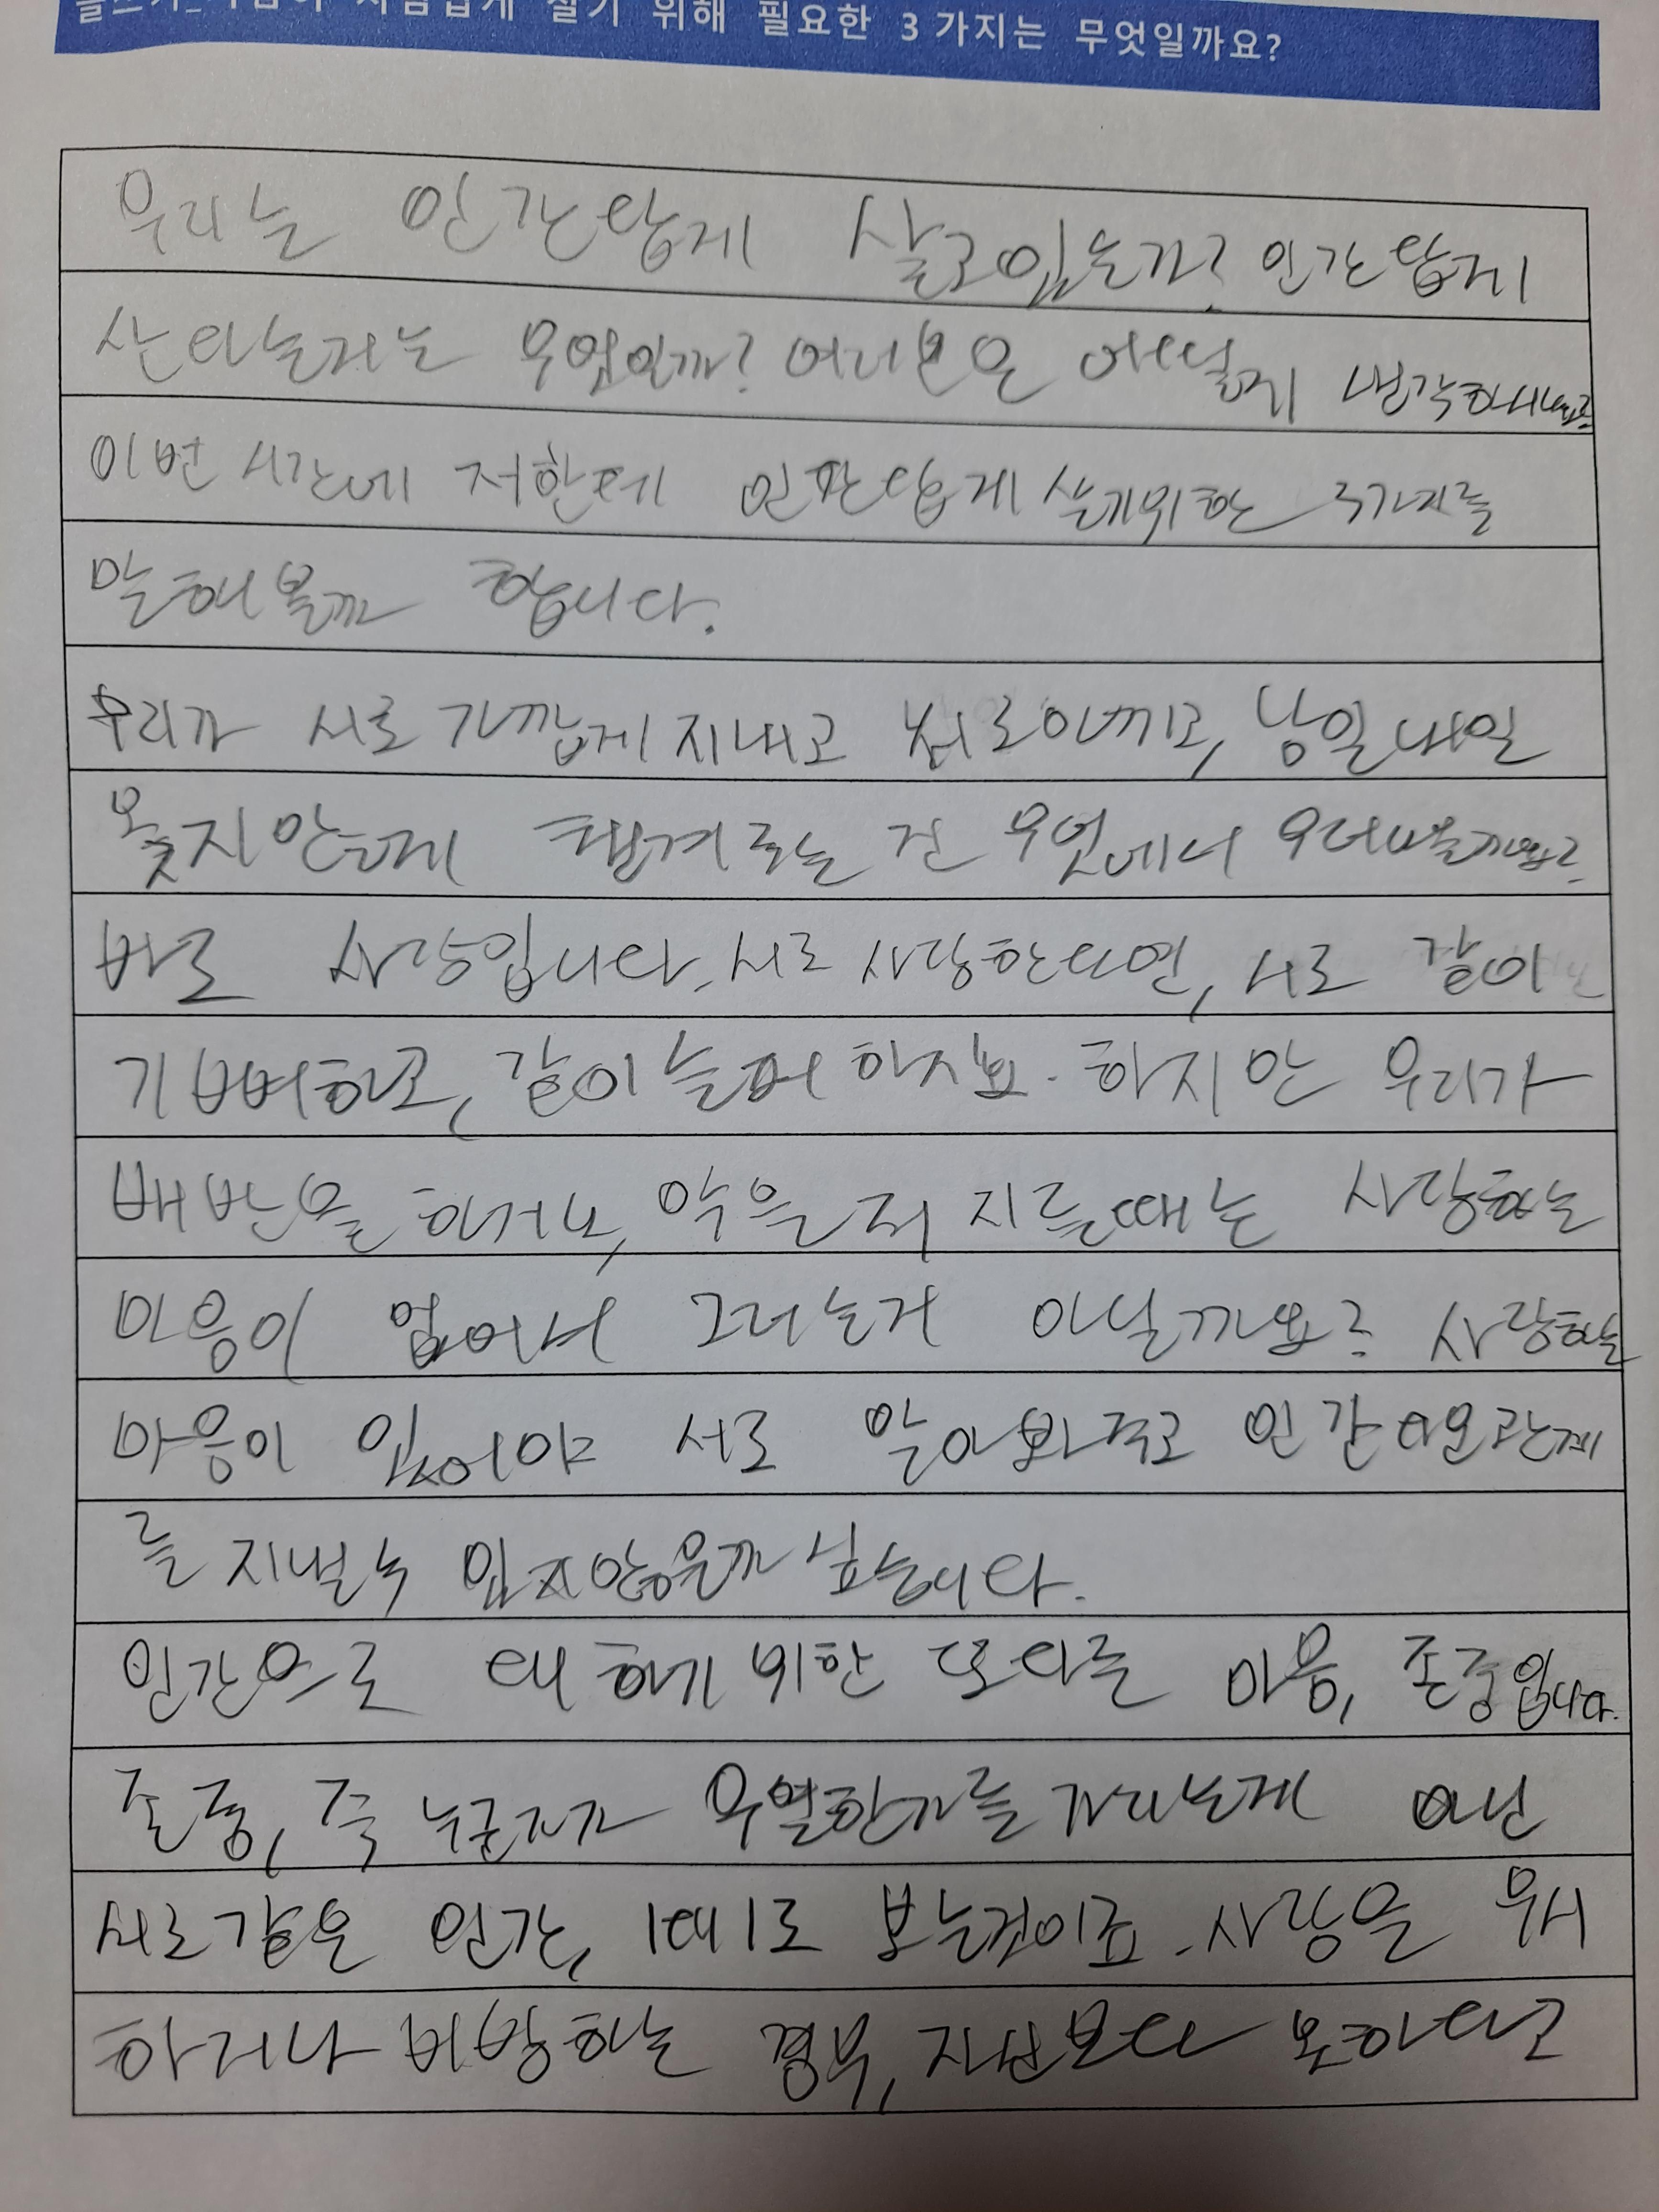 위해 필요한 3가지는 무엇일까요?
우리는 인간답게 살고있는가? 인간답게
산다는거는 무엇인까? 여러분은 어떻게 생각하시나요?
이번 시간에 저한테 인간답게 살기위한 3가지를
말해볼까 합니다.
우리가 서로 가깝게 지내고 서로아끼고, 남일 내일
못지안는게 챙겨주는 건 무엇에서 우러나올까요?
바로 사랑입니다. 서로 사랑한다면, 서로 같이
기뻐하고, 같이 슬퍼하지요. 하지만 우리가
배반을 하거나, 악을 저지를때는 사랑하는
마음이 없어서 그러는거 아닐까요? 사랑하는
마음이 있어야 서로 알아봐주고 인간다운관계
를 지낼수 있지않을까 싶습니다.
인간으로 대하기 위한 또다른 마음, 존중입니다.
존중, 즉 누군가가 우월한가를 가리는게 아닌
서로같은 인간, 1대1로 보는것이죠. 사람을 무시
하거나 비방하는 경우, 자신보다 못하다고